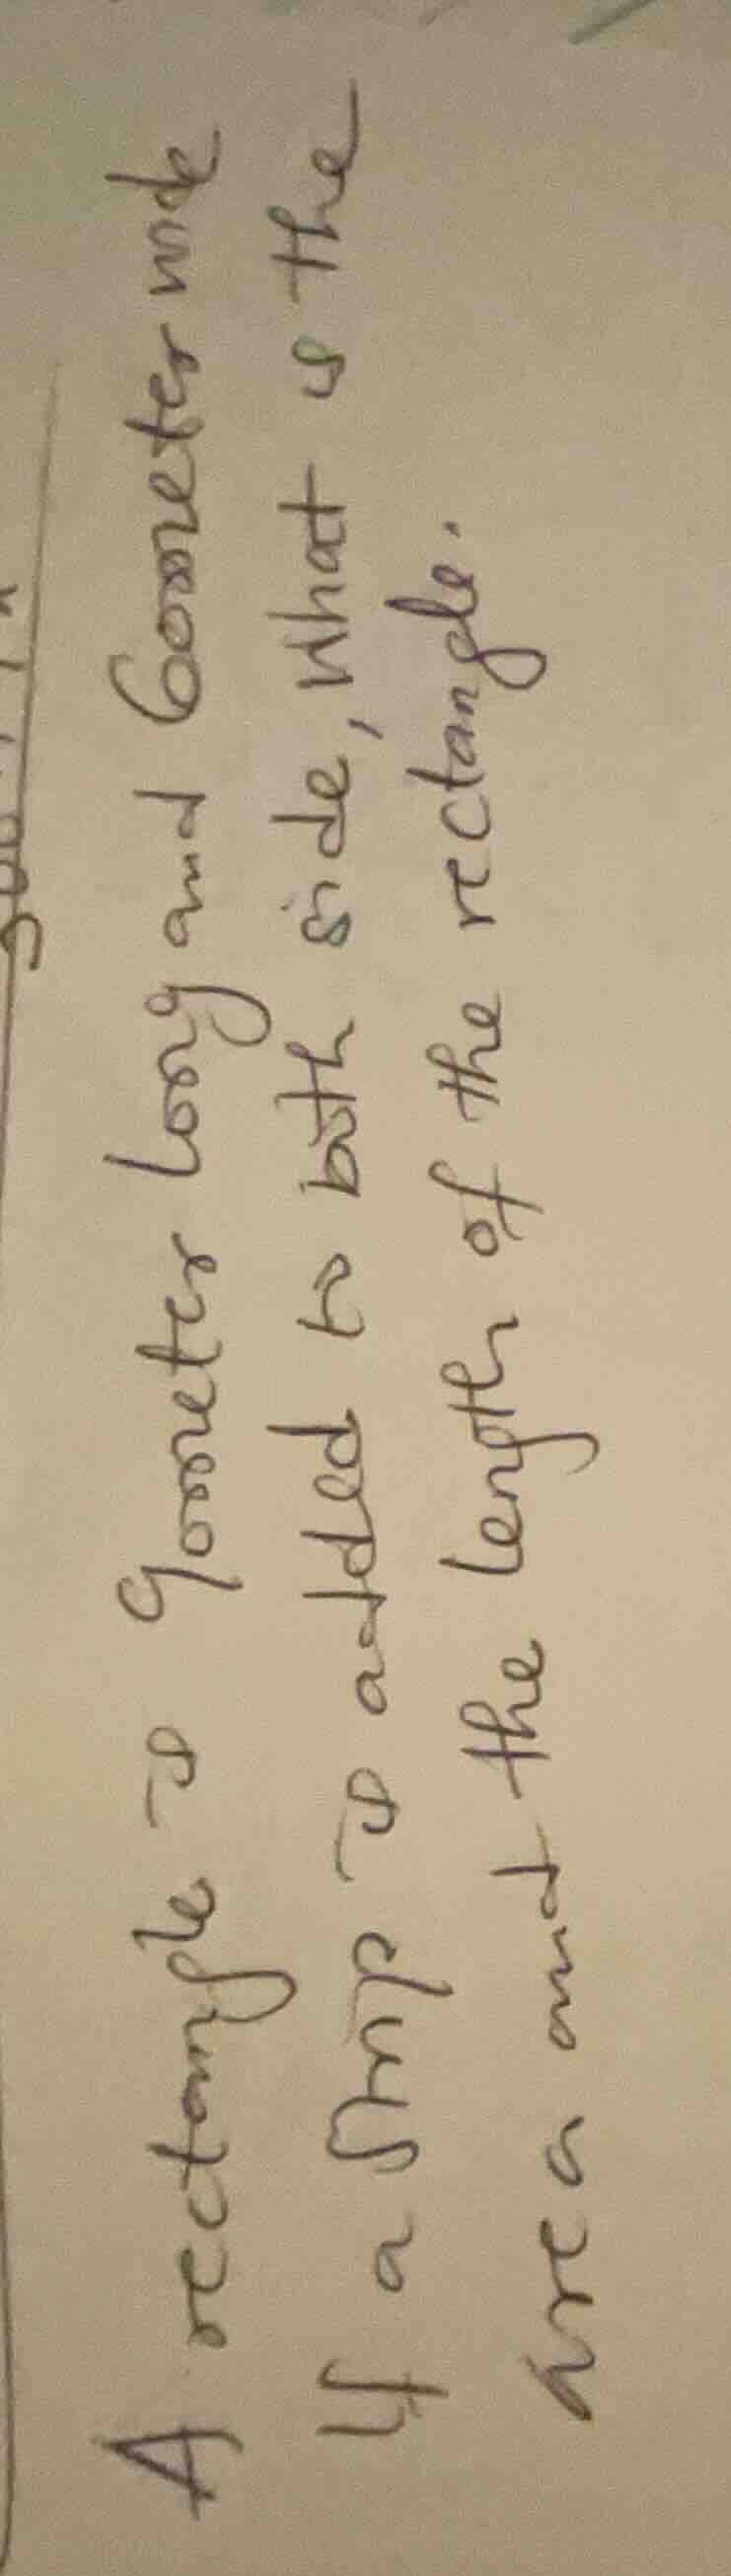 A rectangle is 90meter long and 60meter wide
If a strip is added to both side, what is the
area and the length of the rectangle.